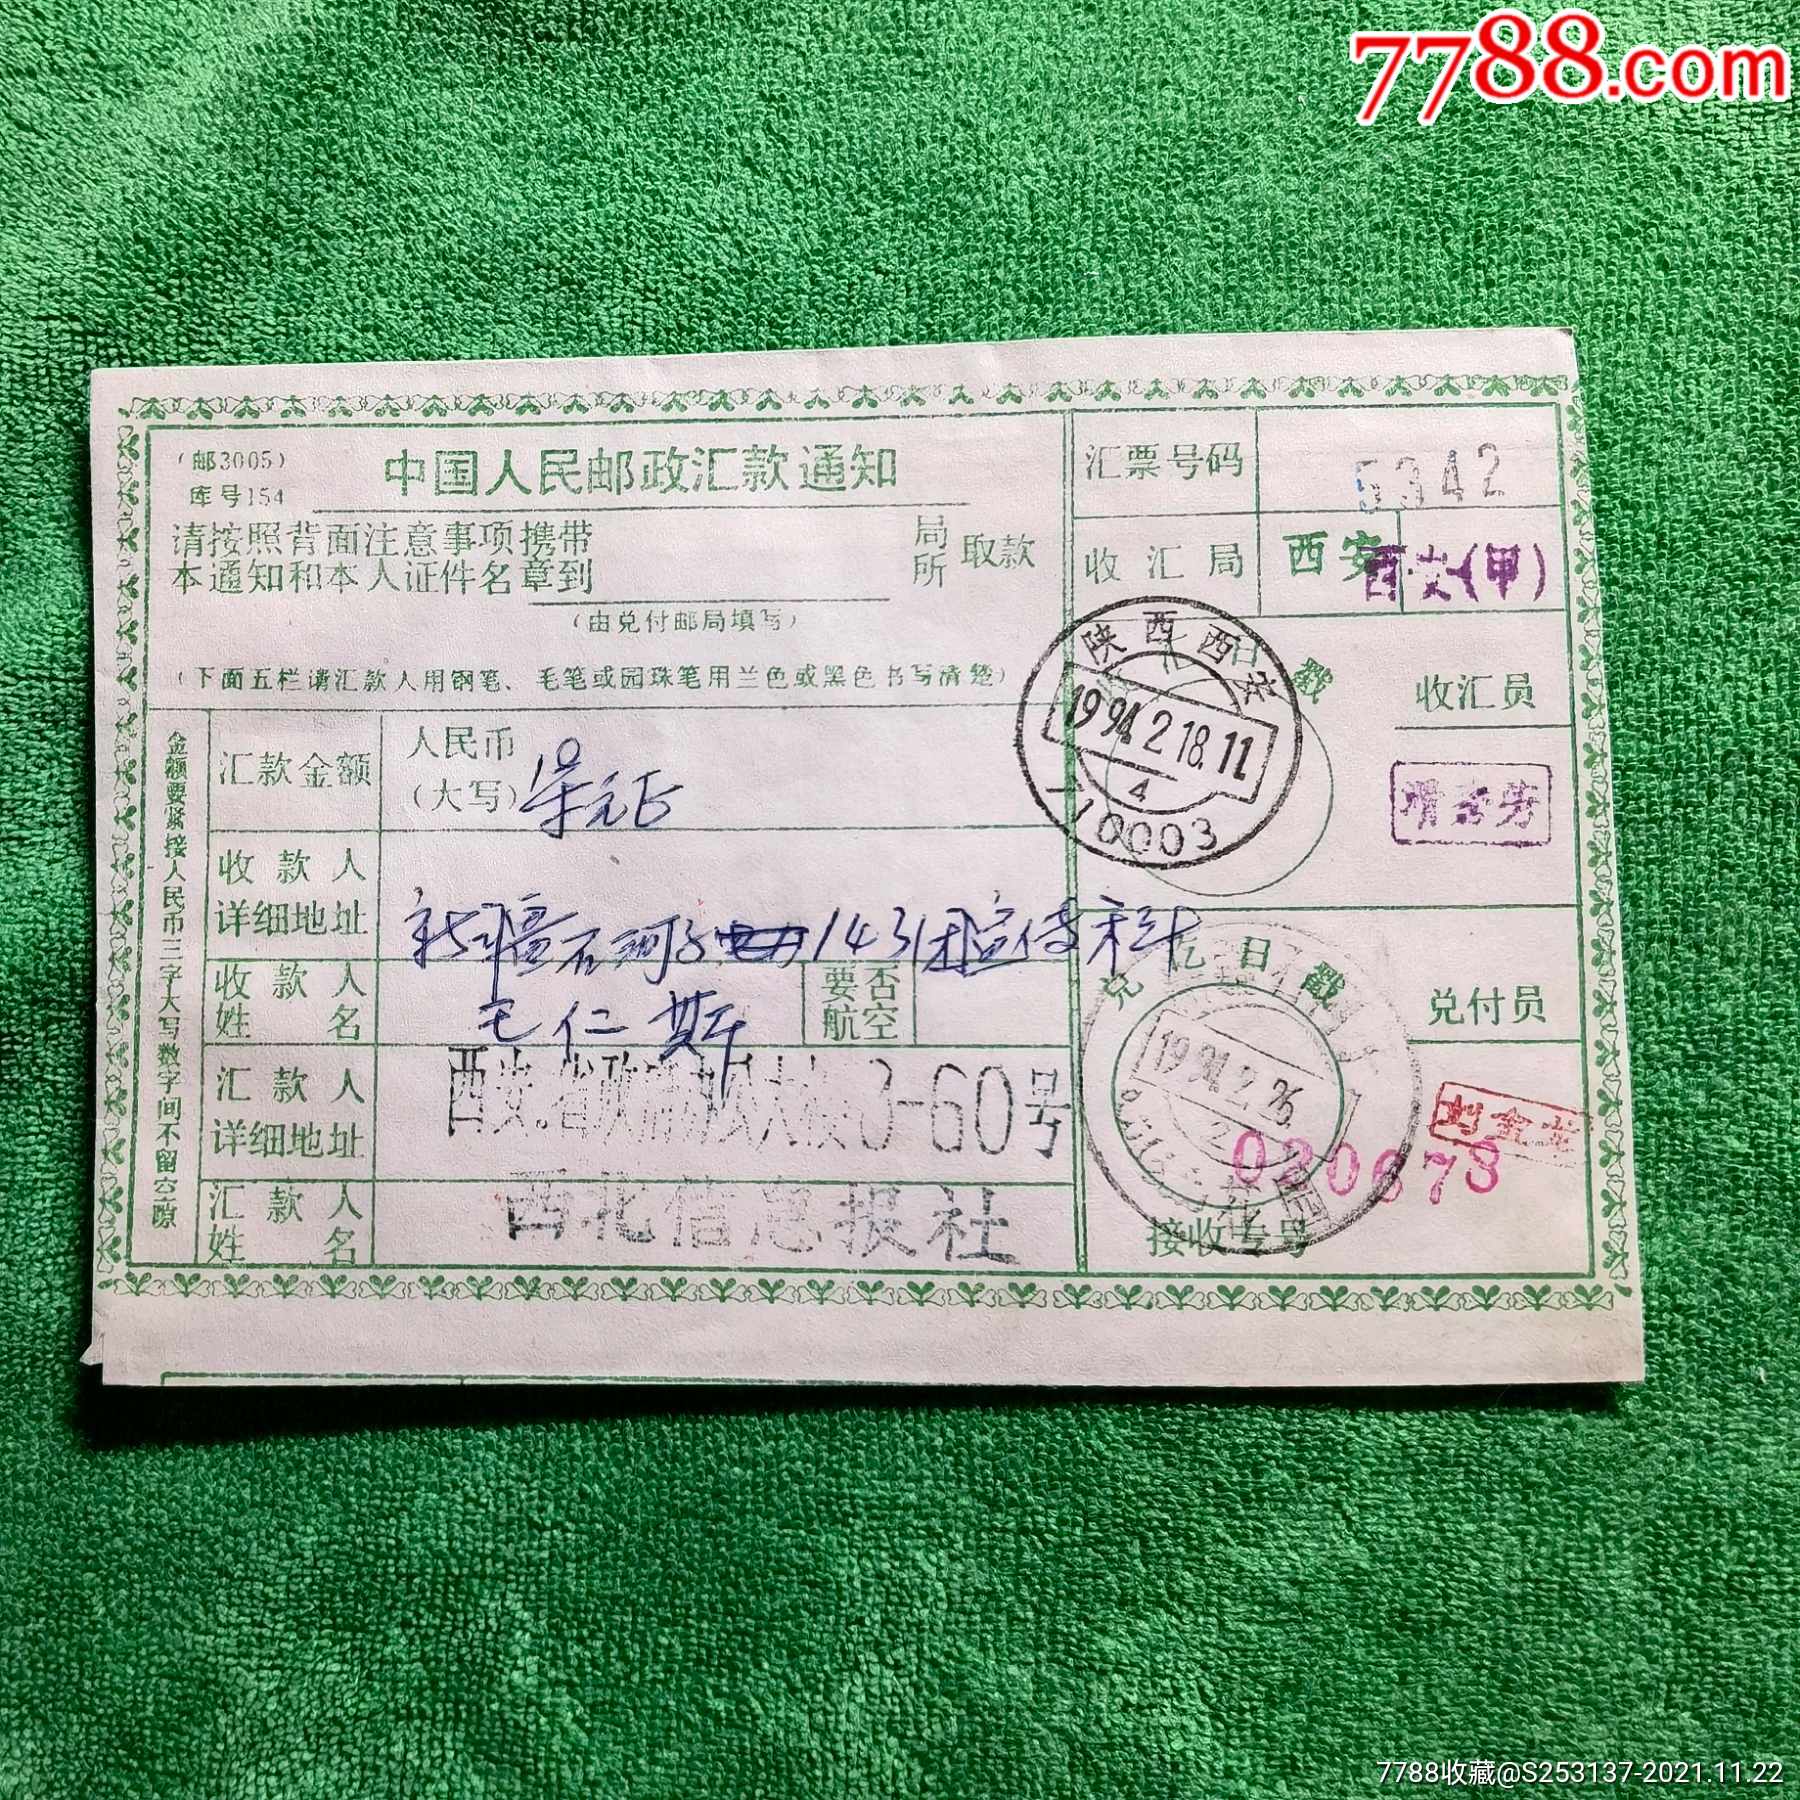 7788.com
(邮3005)
库号154
中国人民邮政汇款通知
请按照背面注意事项携带
本通知和本人证件名章到
局所 取款
(由兑付邮局填写)
(下面五栏请汇款人用钢笔、毛笔或园珠笔用兰色或黑色书写清楚)
金额要紧接人民币三字大写数字间不留空隙
汇款金额
人民币
(大写)
元正
收款人
详细地址
新疆石河子143团宣传科
收款人
姓名
王仁斯
要否
航空
汇款人
详细地址
西安
3-60号
汇款人
姓名
西北信息报社
汇票号码
5342
收汇局
西安
西安(甲)
收汇日戳
陕西西安
1994.2.18.11
4
710003
收汇员
兑付日戳
1994.2.26
2
兑付员
接收专号
7788收藏@S253137-2021.11.22